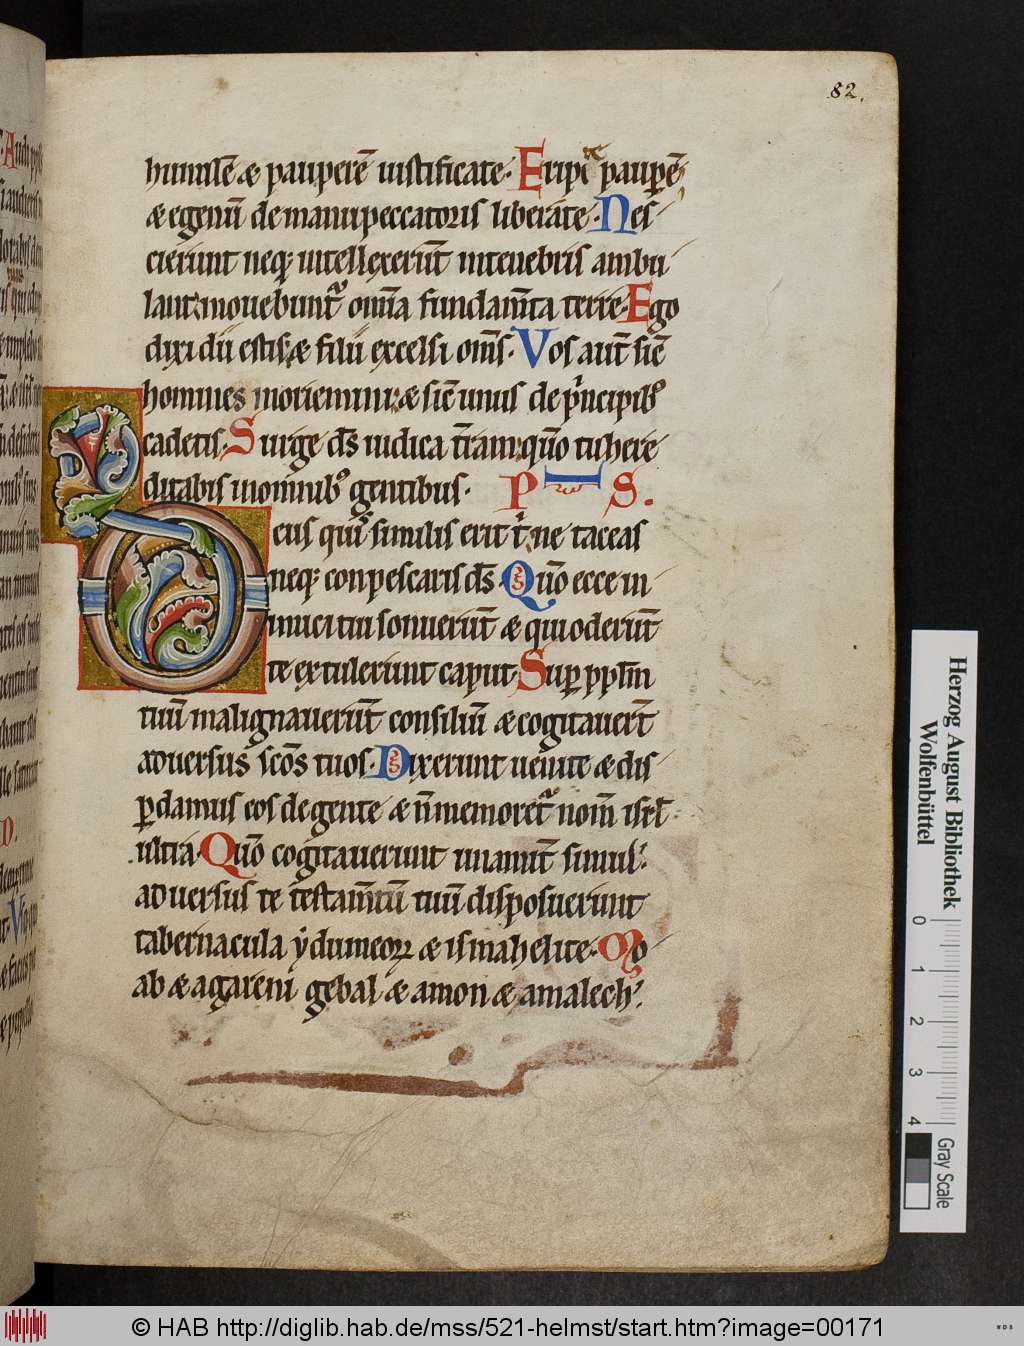 82.
humilē & pauperē iustificate. Eripite pauperē
& egenū de manu peccatoris liberate. Nes-
cierunt neq; intellexerūt in tenebris ambu-
lant: mouebunt᷑ om̄a fundam̄ta terre. Ego
dixi dii estis: & filii excelsi om̄s. Vos aut̄ sic̄
homines moriemini: & sic̄ unus de p̓ncipib᷒
cadetis. Surge ds̄ iudica t̄ram: qūo tu here-
ditabis in om̄nib᷒ gentibus. PS.
Deus quis similis erit t̓ ne taceas
neq; conpescaris ds̄. Qūo ecce in-
imici tui sonuerūt & qui oderūt
te extulerunt caput. Sup̱ pp̄lm
tuū malignauerūt consiliū & cogitauer̄t
aduersus sc̄os tuos. Dixerunt uenite & dis-
ꝑdamus eos de gente & n̄ memoret᷑ nom̄ isrl̄
ultra. Qūo cogitauerunt unanim̄t simul:
aduersus te testam̄tū tuū disposuerunt
tabernacula ẏdumeoꝝ & ismahelite. Mo-
ab & agareni gebal & amon & amalech:
Herzog August Bibliothek
Wolfenbüttel
0 1 2 3 4
Gray Scale
© HAB http://diglib.hab.de/mss/521-helmst/start.htm?image=00171